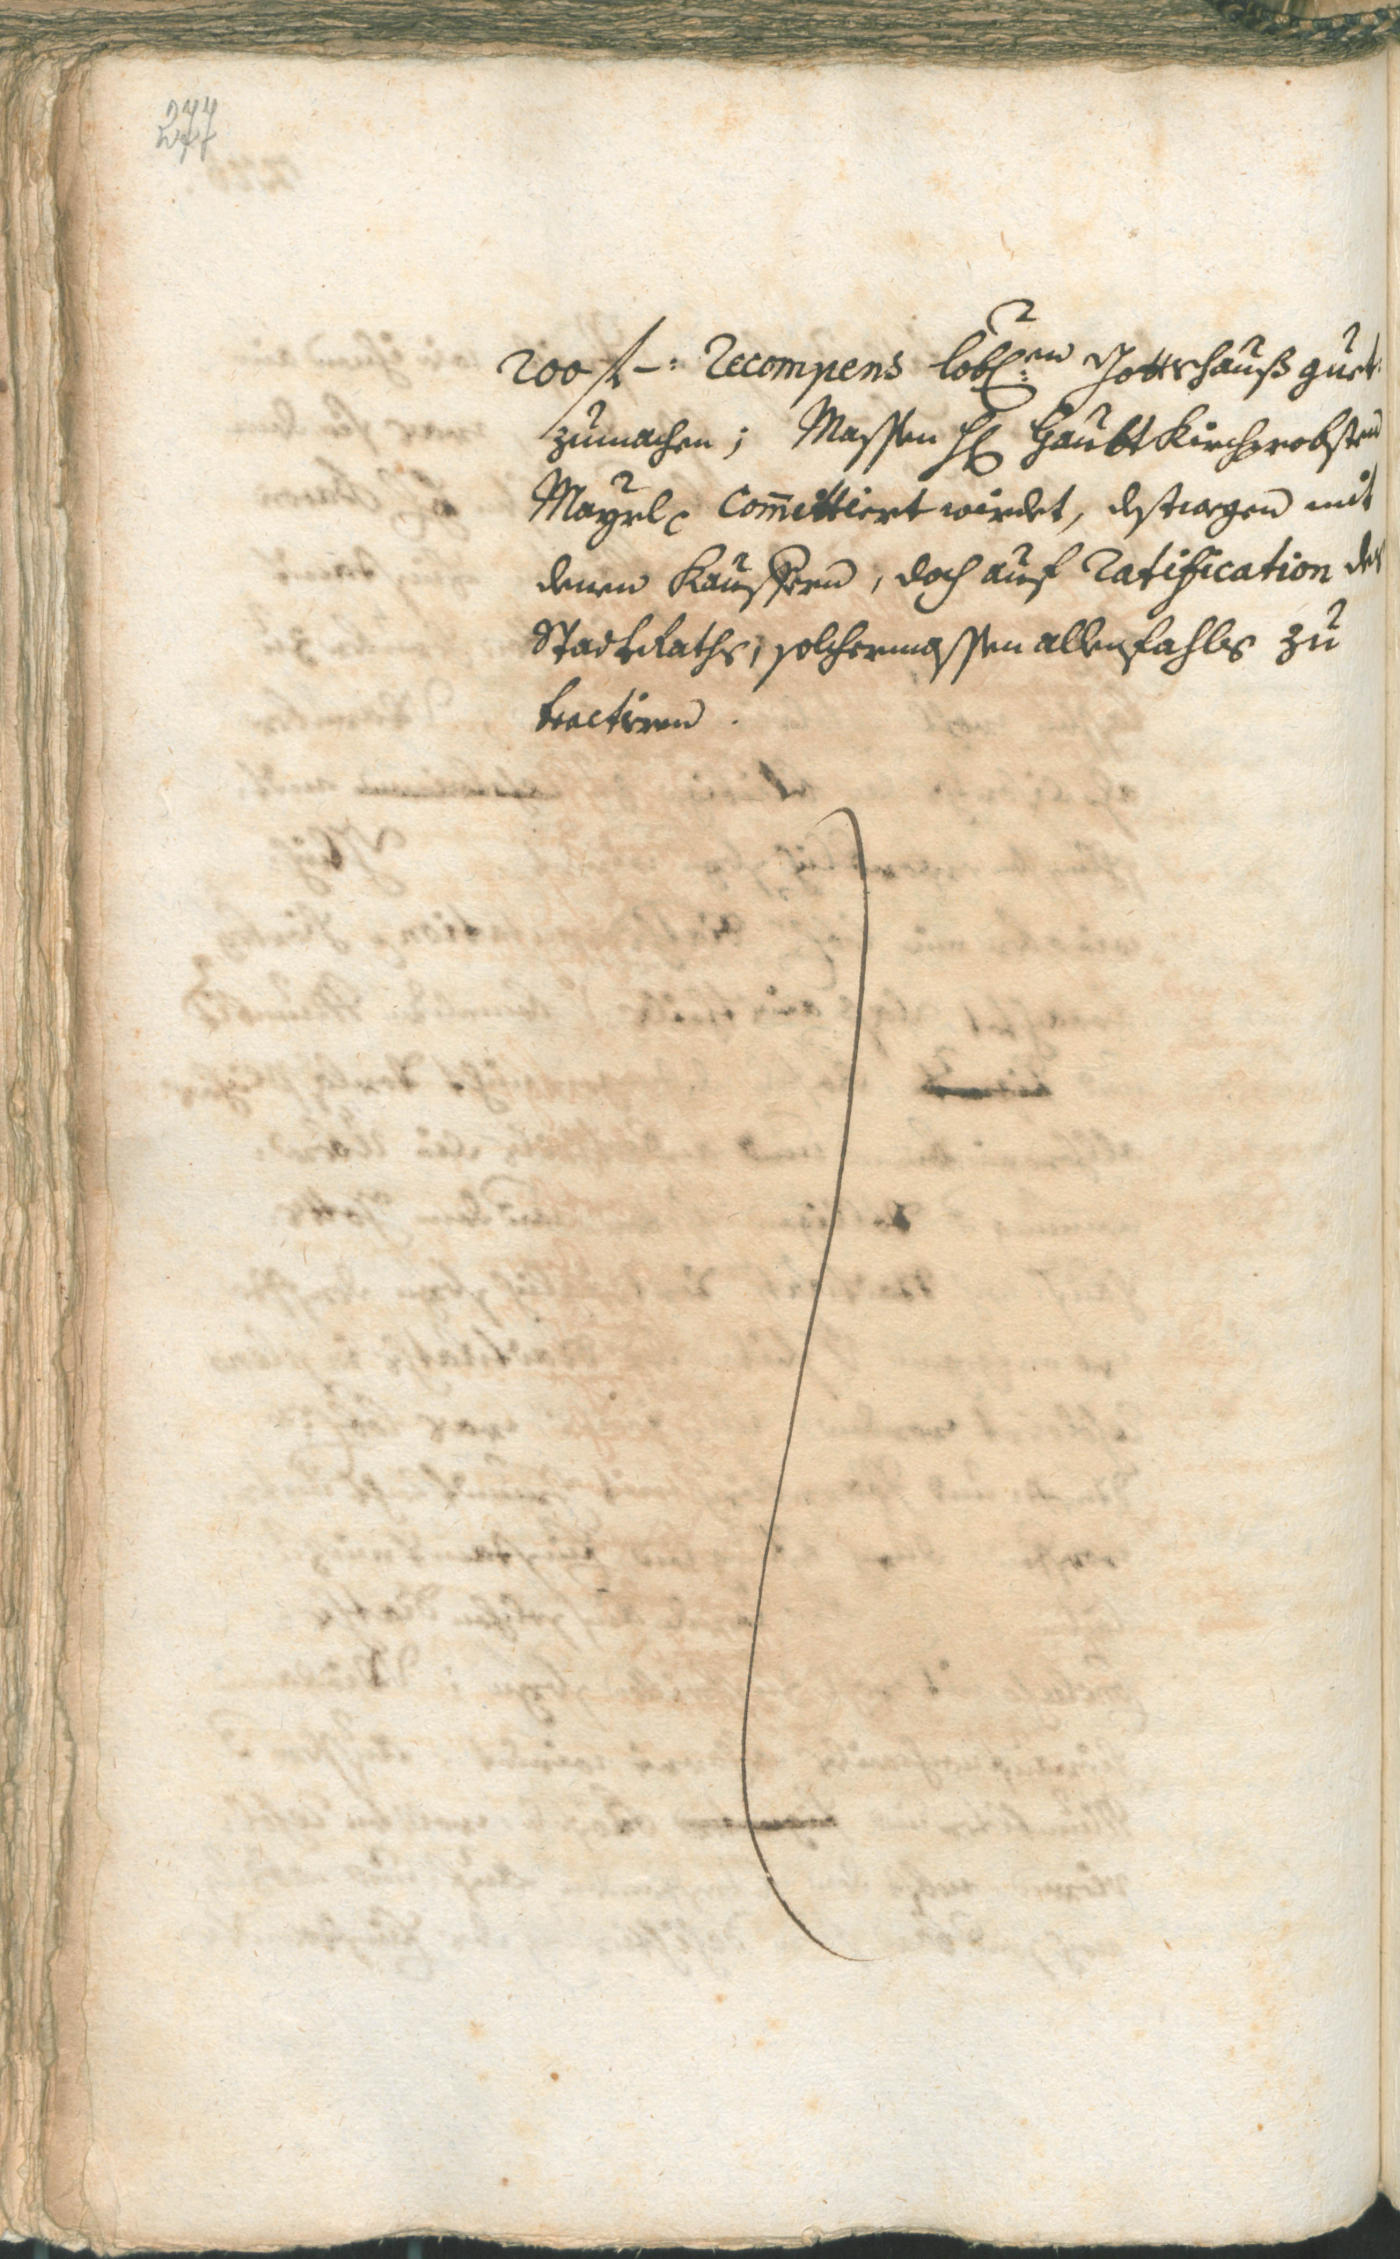 277
200 f –: Recompens lobl:en Gottshauß guet
zumachen; Massen H: Haubt Kirchprobsten
Mayrl committiert wirdet, destwegen mit
denen Kauffern, doch auf Ratification des
Stadtraths, solchermassen allenfahls zu
tractiren.